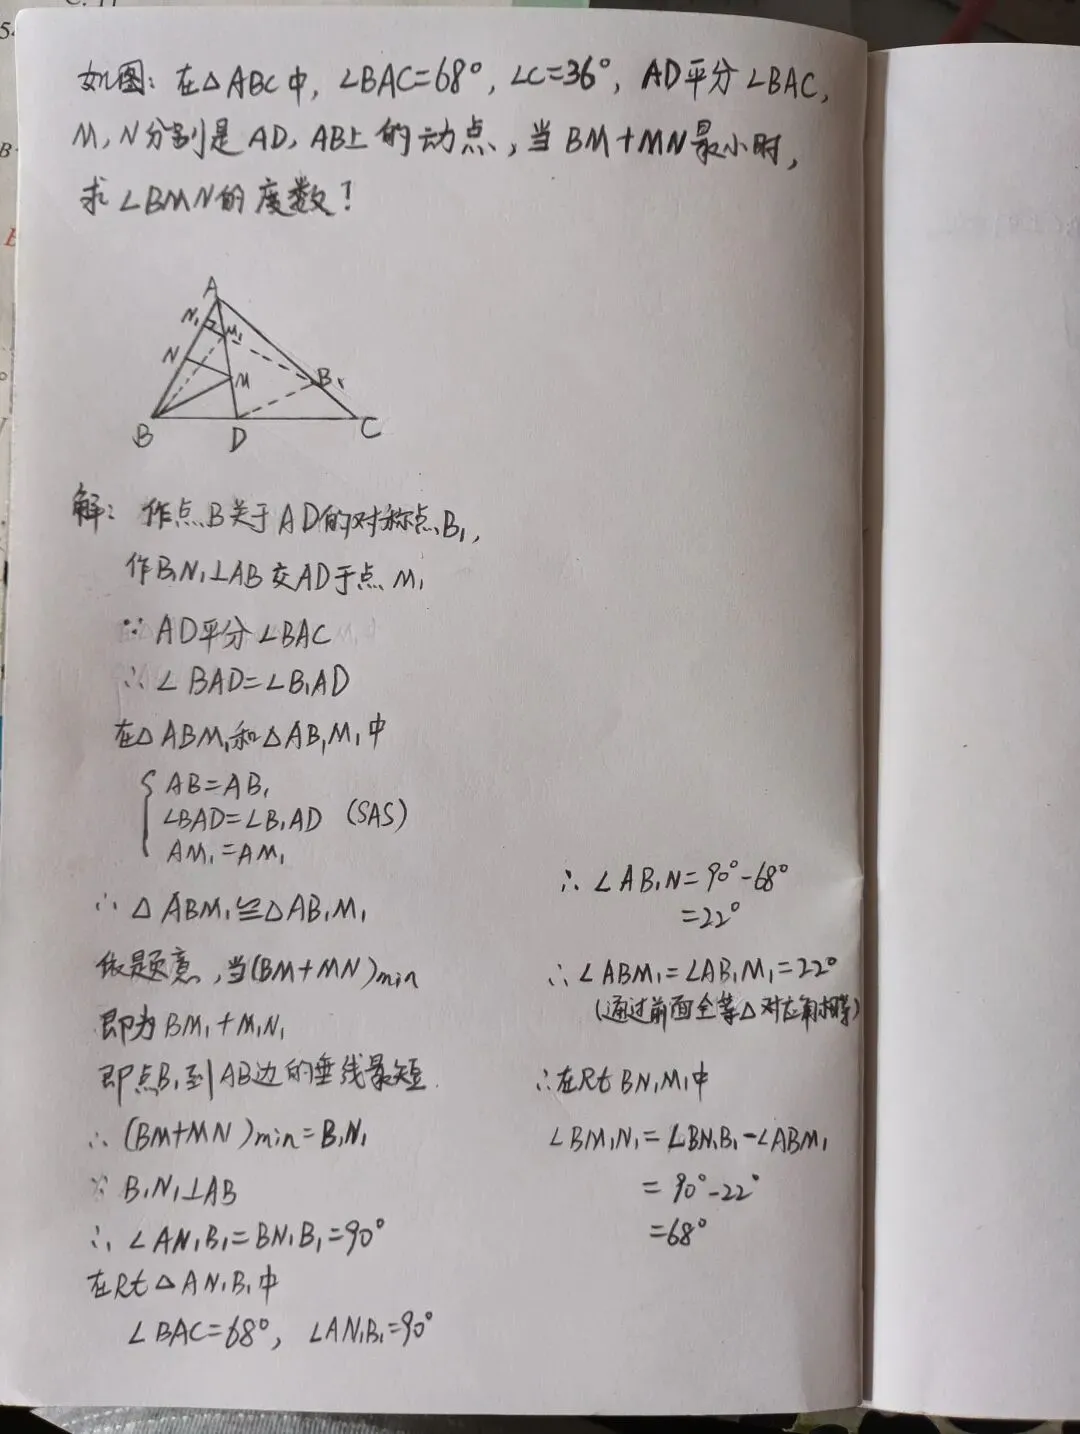 如图：在△ABC中，∠BAC=68°，∠C=36°，AD平分∠BAC，
M，N分别是AD，AB上的动点，当BM+MN最小时，
求∠BMN的度数？
A
N₁
M₁
N
M
B₁
B
D
C
解：作点B关于AD的对称点B₁，
作B₁N₁⊥AB交AD于点M₁
∵AD平分∠BAC
∴∠BAD=∠B₁AD
在△ABM₁和△AB₁M₁中
AB=AB₁
∠BAD=∠B₁AD (SAS)
AM₁=AM₁
∴△ABM₁≌△AB₁M₁
依题意，当(BM+MN)min
即为BM₁+M₁N₁
即点B₁到AB边的垂线最短.
∴(BM+MN)min=B₁N₁
∵B₁N₁⊥AB
∴∠AN₁B₁=BN₁B₁=90°
在Rt△AN₁B₁中
∠BAC=68°，∠AN₁B₁=90°
∴∠AB₁N=90°-68°
=22°
∴∠ABM₁=∠AB₁M₁=22°
(通过前面全等△对应角相等)
∴在Rt BN₁M₁中
∠BM₁N₁=∠BN₁B₁-∠ABM₁
=90°-22°
=68°